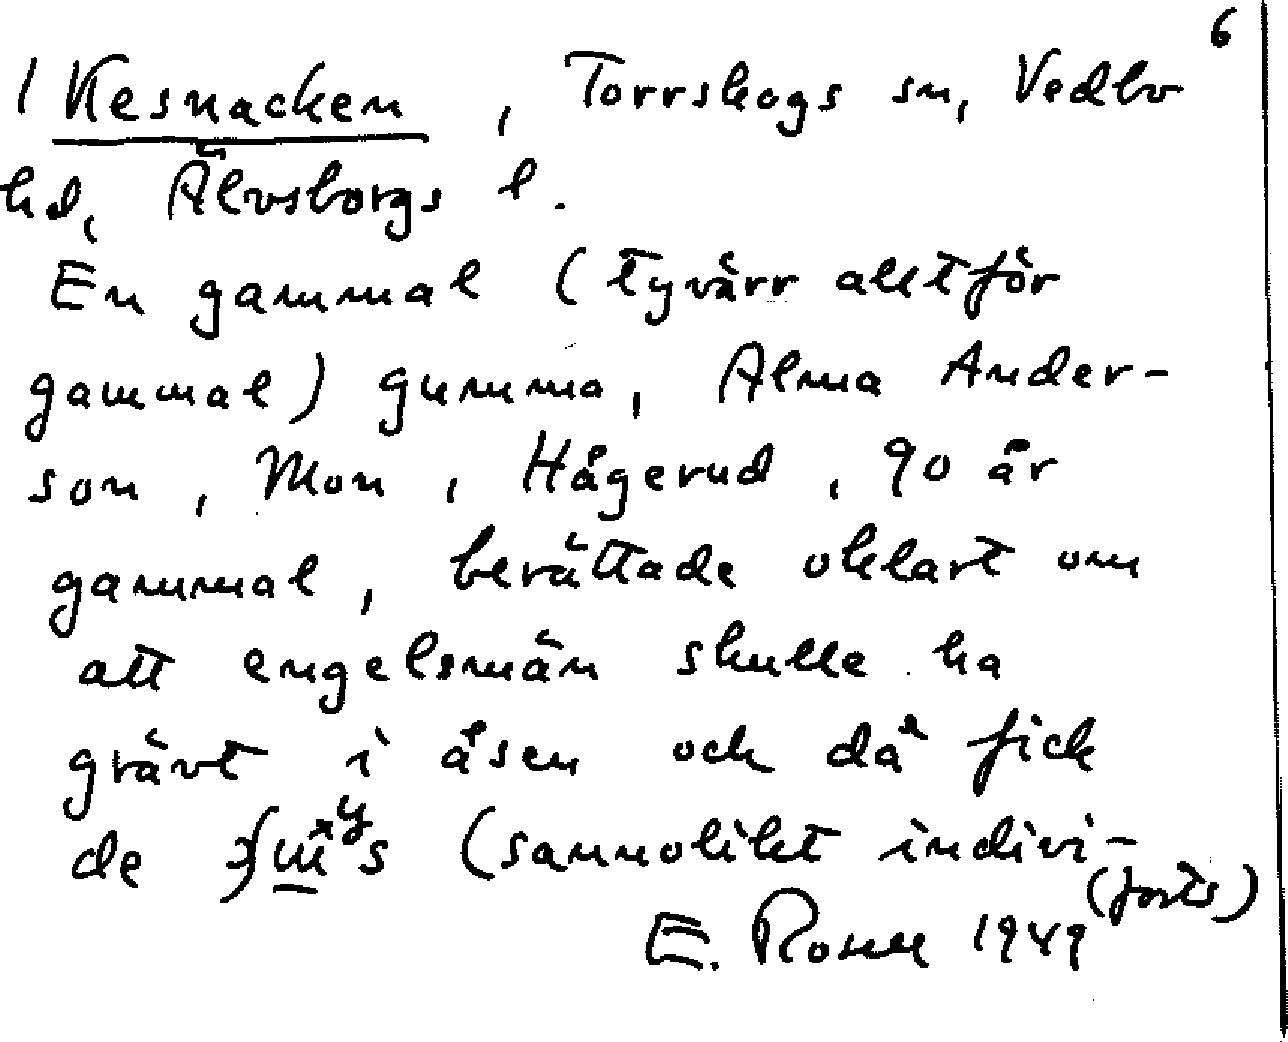 6
/ Kesnacken, Torrskogs sn, Vedbo
hd, Älvsborgs l.
En gammal (tyvärr alltför
gammal) gumma, Alma Ander-
son, Mon, Hågerud, 90 år
gammal, berättade oklart om
att engelsmän skulle ha
grävt i åsen och då fick
de (sannolikt indivi-
(forts)
E. Rosell 1949